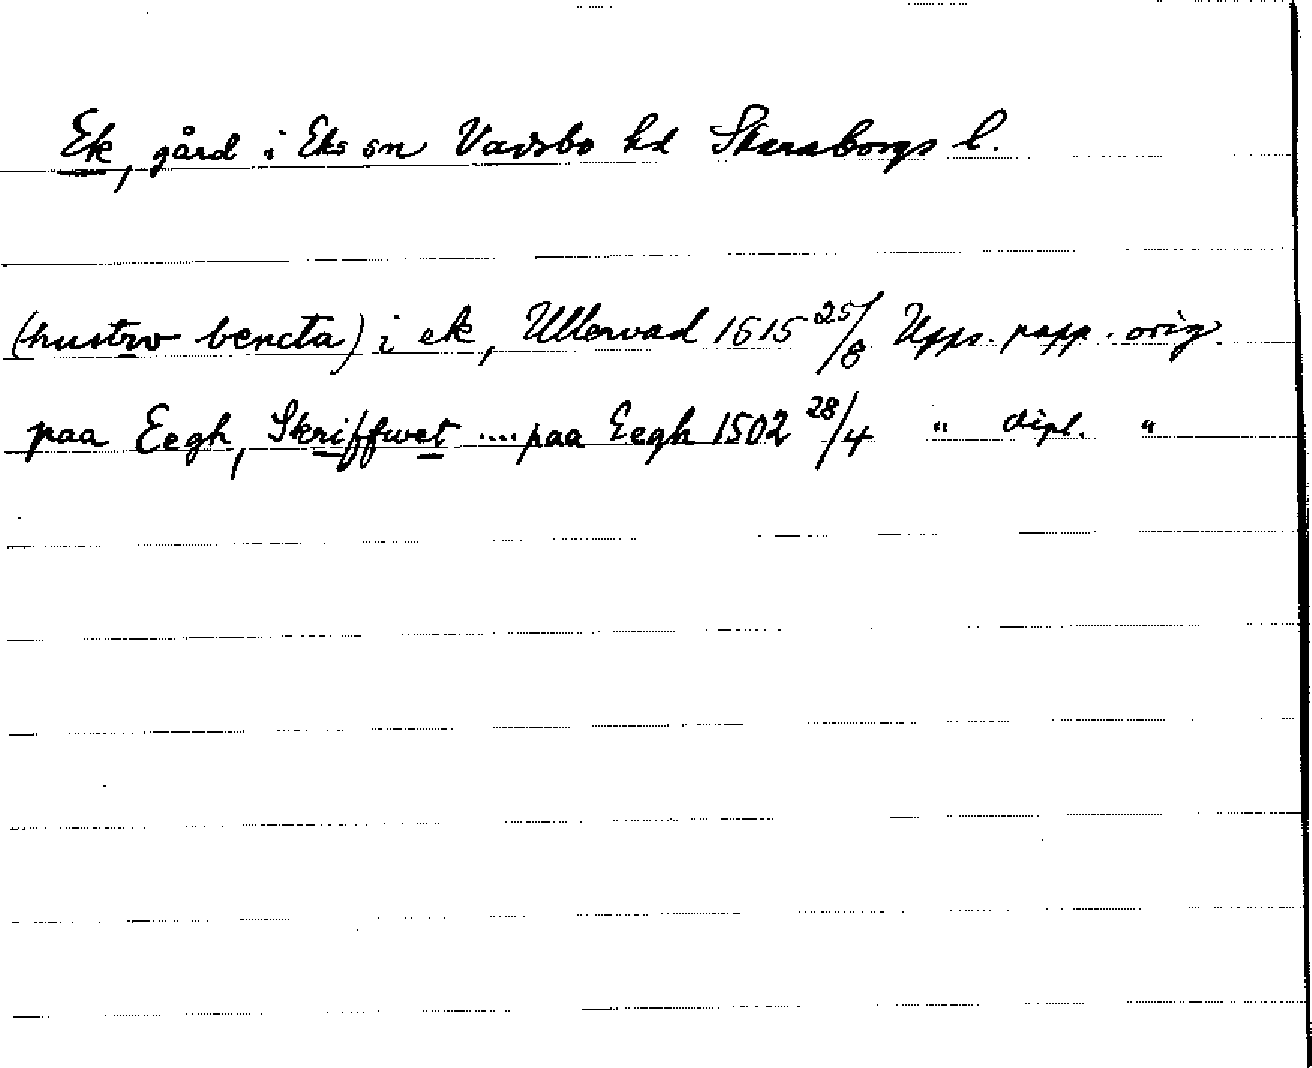 Ek, gård i Eks sn Vadsbo hd Skaraborgs l.
(hustrv bencta) i ek, Ullervad 1515 25/8 Upps. papp. orig.
paa Eegh, Skriffwet .... paa Eegh 1502 28/4 " dipl. "